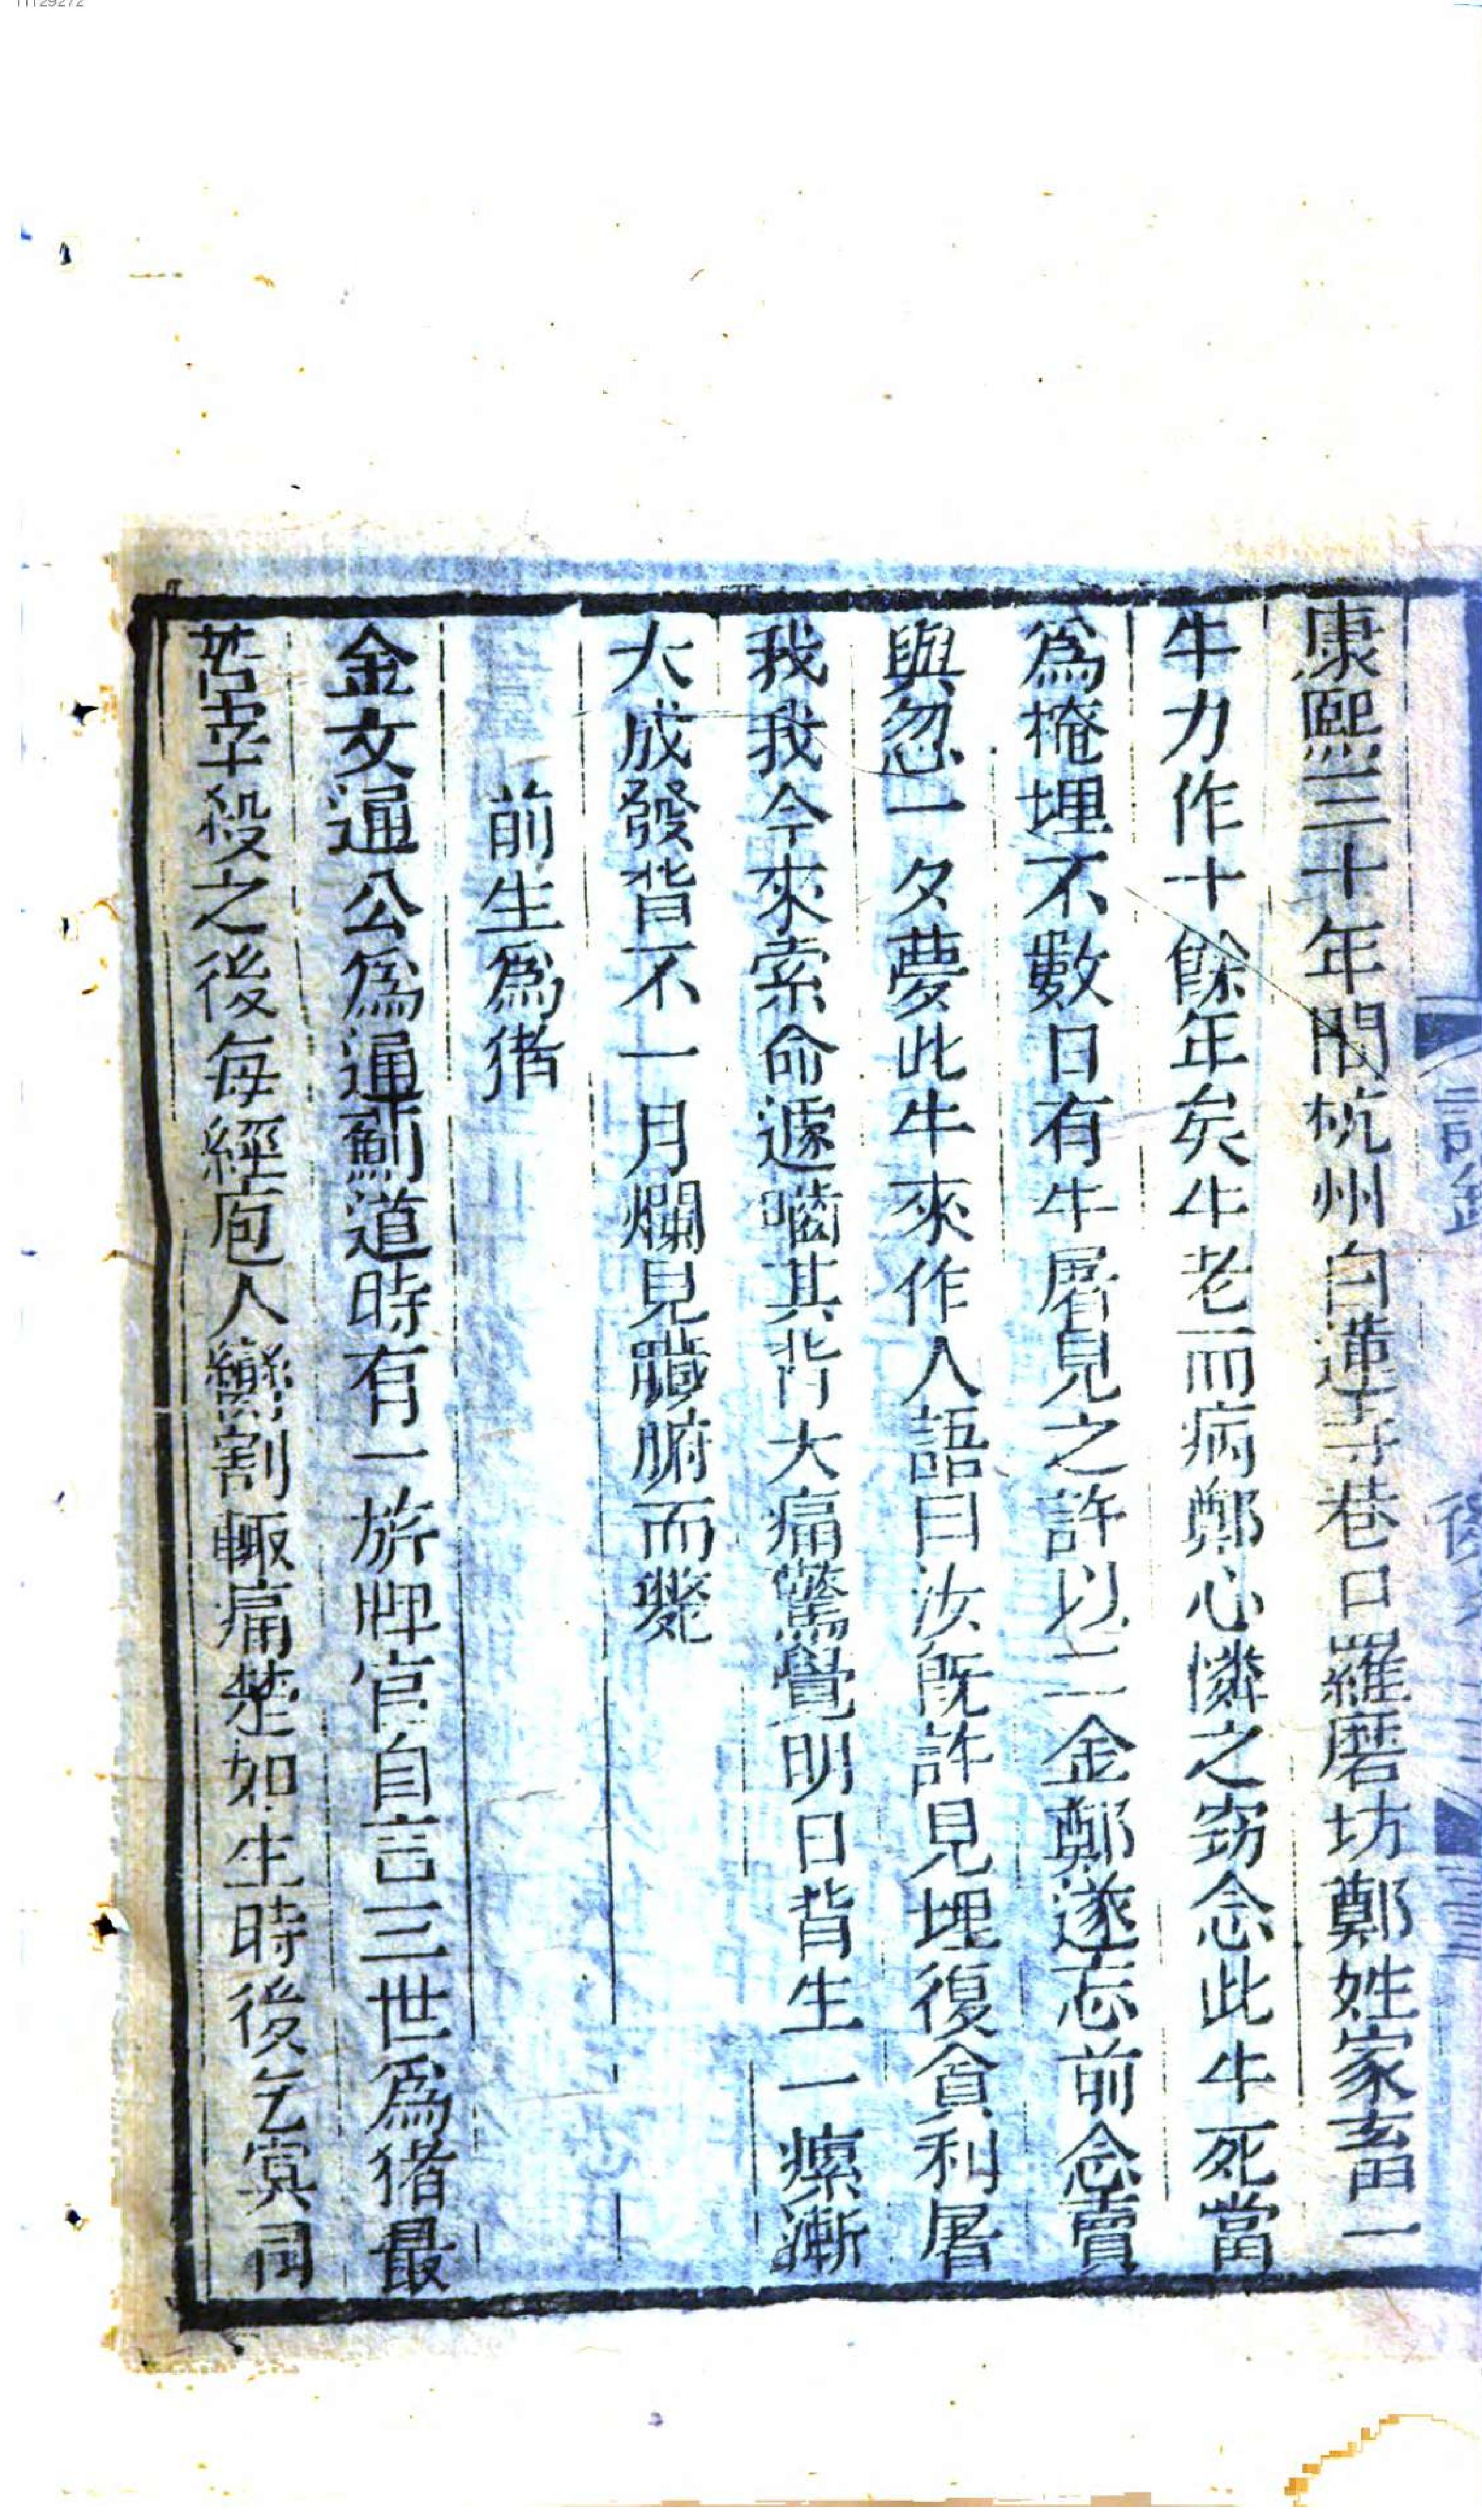 康熙三十年間杭州白蓮寺巷口羅磨坊鄭姓家畜一
牛力作十餘年矣牛老而病鄭心憐之窃念此牛死當
爲掩埋不數日有牛屠見之許以二金鄭遂忘前念賣
與忽一夕夢此牛來作人語曰汝既許見埋復貪利屠
我我今來索命遽嚙其背大痛驚覺明日背生一瘰漸
大成發背不一月爛見臟腑而斃
前生爲猪
金文通公爲通薊道時有一旂牌官自言三世爲猪最
苦宰殺之後每經庖人臠割輒痛楚如生時後乞冥司